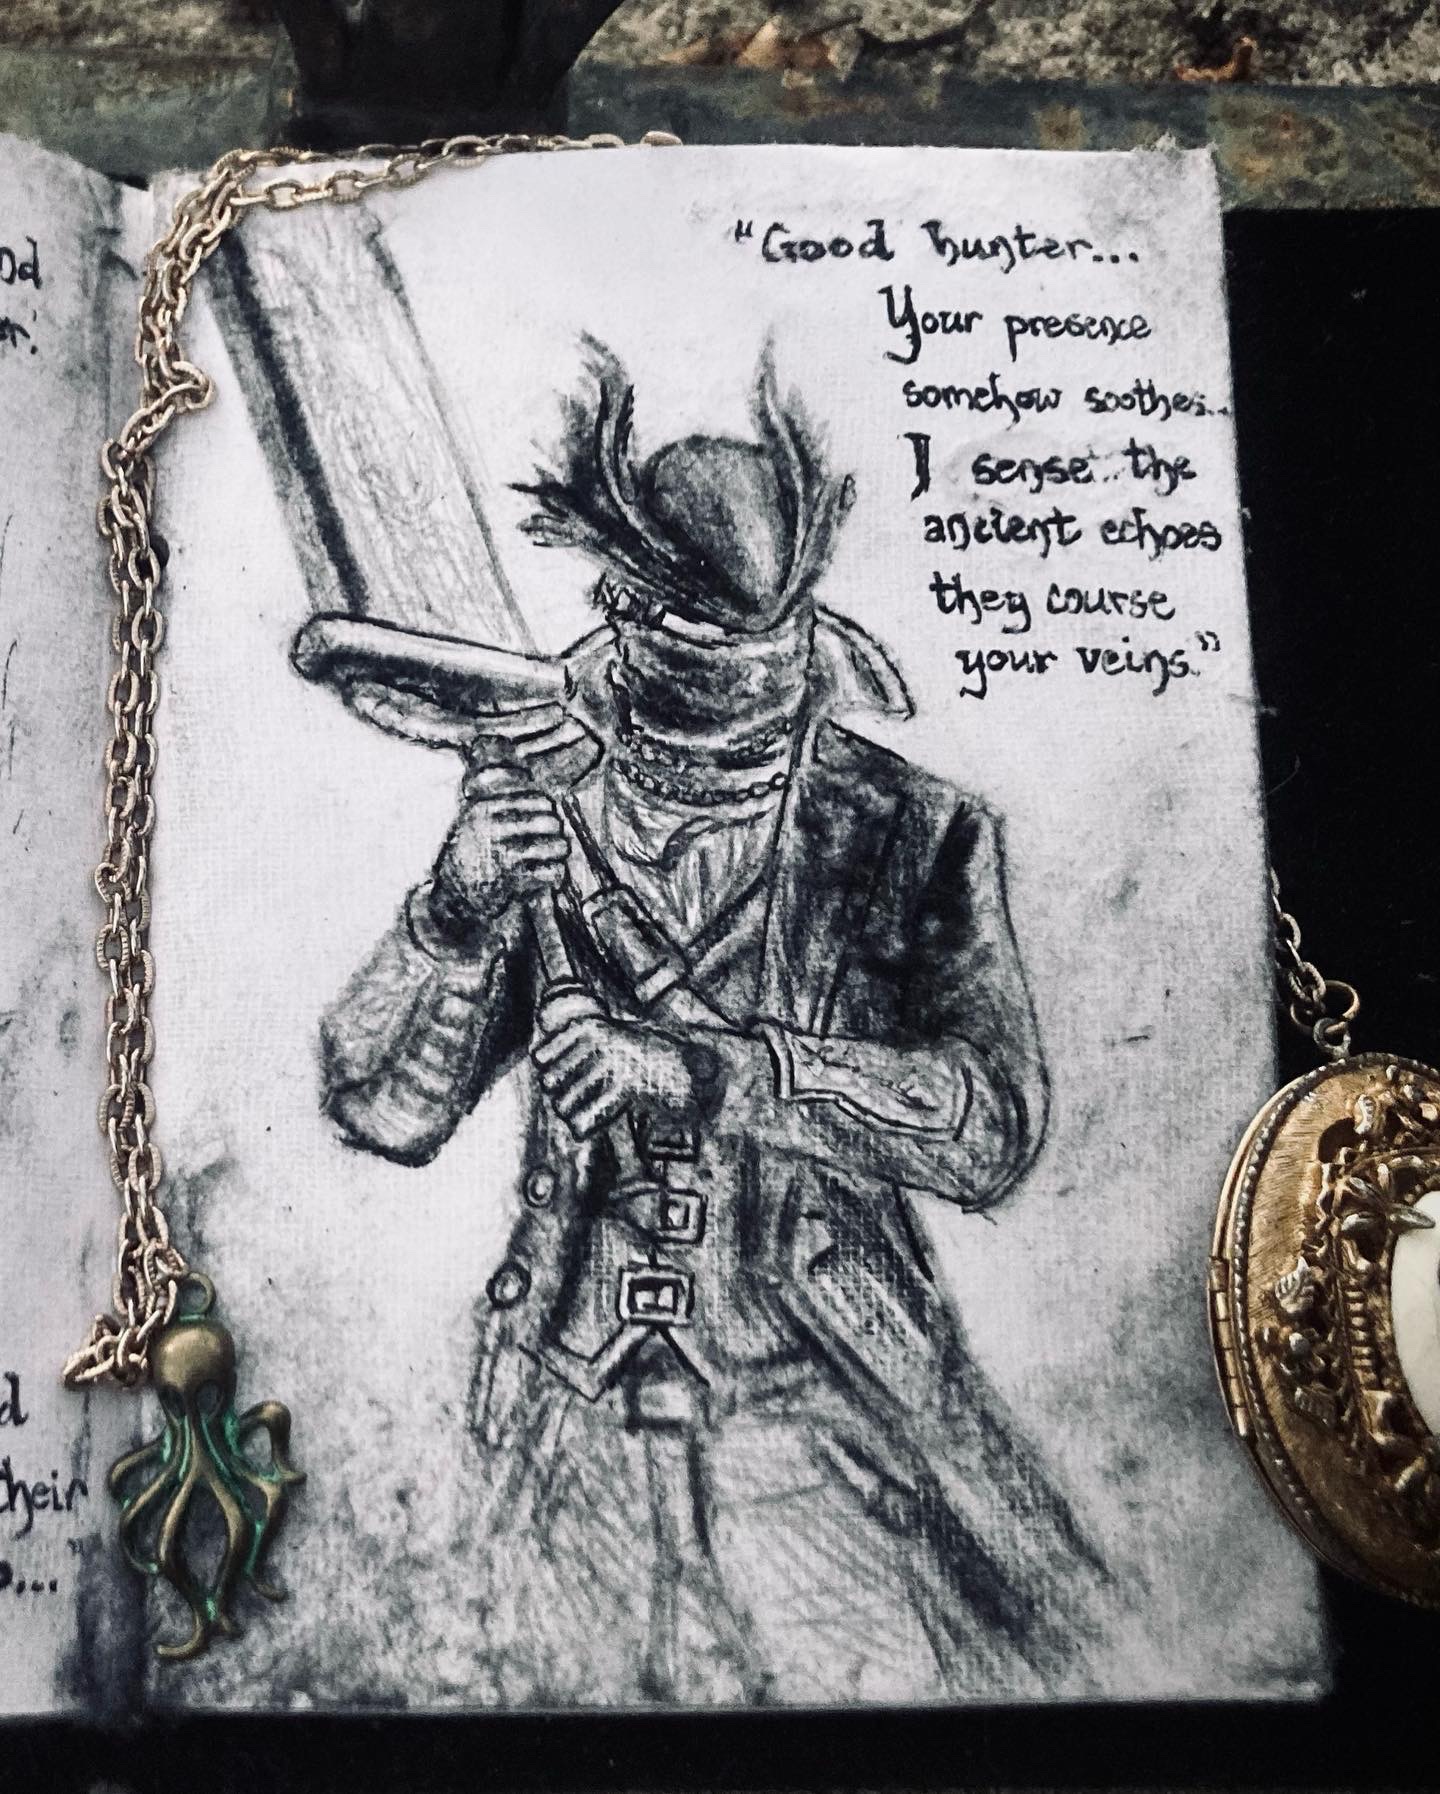 nd
er.'
d
their
o..."
"Good hunter...
Your presence
somehow soothes...
I sense.. the
ancient echoes
they course
your veins."